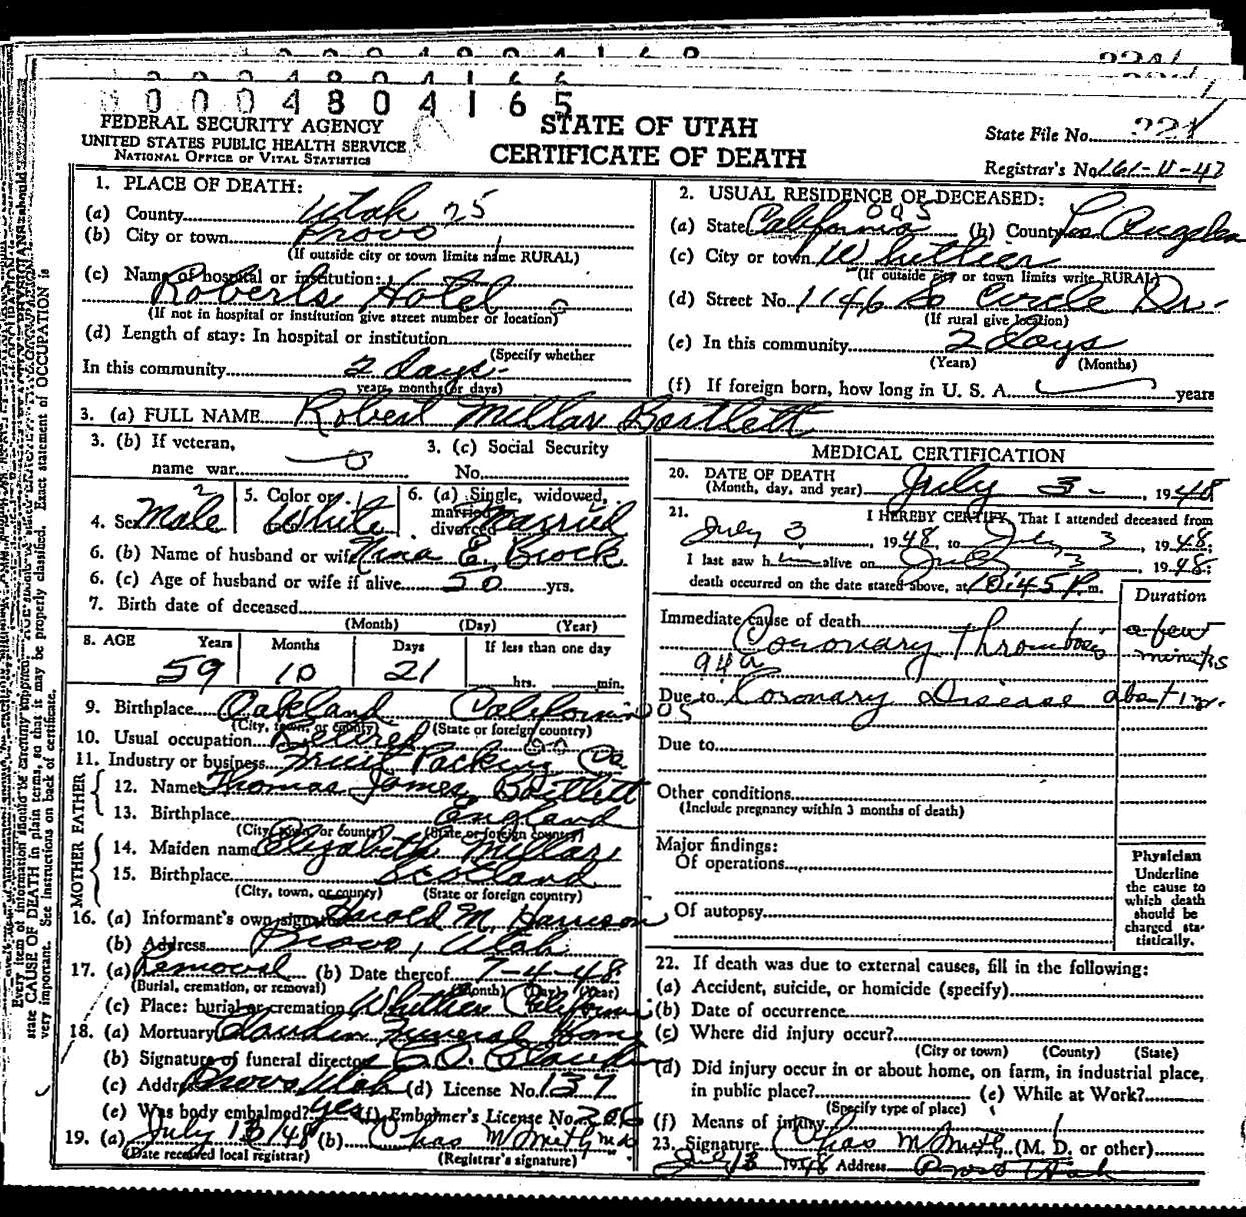 0 0 0 4 8 0 4 1 6 5
FEDERAL SECURITY AGENCY
UNITED STATES PUBLIC HEALTH SERVICE
NATIONAL OFFICE OF VITAL STATISTICS
STATE OF UTAH
CERTIFICATE OF DEATH
State File No.
Registrar's No.
1. PLACE OF DEATH:
(a) County Utah 25
(b) City or town Provo
(If outside city or town limits name RURAL)
(c) Name of hospital or institution:
Roberts Hotel
(If not in hospital or institution give street number or location)
(d) Length of stay: In hospital or institution
(Specify whether
In this community 2 days
years, months or days)
2. USUAL RESIDENCE OF DECEASED:
(a) State California 005 (b) County Los Angeles
(c) City or town Whittier
(If outside city or town limits write RURAL)
(d) Street No. 1146 So Circle Dr.
(If rural give location)
(e) In this community 2 days
(Years) (Months)
(f) If foreign born, how long in U. S. A. years
3. (a) FULL NAME Robert Millar Bartlett
3. (b) If veteran,
name war
3. (c) Social Security
No.
4. Sex Male
5. Color or race White
6. (a) Single, widowed, married, divorced Married
6. (b) Name of husband or wife Nina E. Brock
6. (c) Age of husband or wife if alive 50 yrs.
7. Birth date of deceased
(Month) (Day) (Year)
8. AGE Years Months Days If less than one day
59 10 21 hrs. min.
9. Birthplace Oakland California 005
(City, town, or county) (State or foreign country)
10. Usual occupation Retired
11. Industry or business Fruit Packing Co
FATHER
12. Name Thomas James Bartlett
13. Birthplace England
(City, town or county) (State or foreign country)
MOTHER
14. Maiden name Elizabeth Millar
15. Birthplace Scotland
(City, town, or county) (State or foreign country)
16. (a) Informant's own signature Harold M. Harrison
(b) Address Provo, Utah
17. (a) Removal (b) Date thereof 7-4-48
(Burial, cremation, or removal) (Month) (Day) (Year)
(c) Place: burial or cremation Whittier California
18. (a) Mortuary Claudin Funeral Home
(b) Signature of funeral director
(c) Address Provo Utah (d) License No. 137
(e) Was body embalmed? Yes (f) Embalmer's License No. 206
19. (a) July 13/48 (b) Chas
(Date received local registrar) (Registrar's signature)
MEDICAL CERTIFICATION
20. DATE OF DEATH
(Month, day, and year) July 3- , 1948
21. I HEREBY CERTIFY, That I attended deceased from
July 3, 1948, to July 3, 1948;
I last saw him alive on July 3, 1948;
death occurred on the date stated above, at 10:45 P. m.
Duration
Immediate cause of death
Coronary Thrombosis a few minutes
94a
Due to Coronary Disease
Due to
Other conditions
(Include pregnancy within 3 months of death)
Major findings:
Of operations
Of autopsy
Physician
Underline
the cause to
which death
should be
charged sta-
tistically.
22. If death was due to external causes, fill in the following:
(a) Accident, suicide, or homicide (specify)
(b) Date of occurrence
(c) Where did injury occur?
(City or town) (County) (State)
(d) Did injury occur in or about home, on farm, in industrial place,
in public place? (e) While at Work?
(Specify type of place)
(f) Means of injury
23. Signature Chas (M. D. or other)
July 13 1948 Address Provo Utah